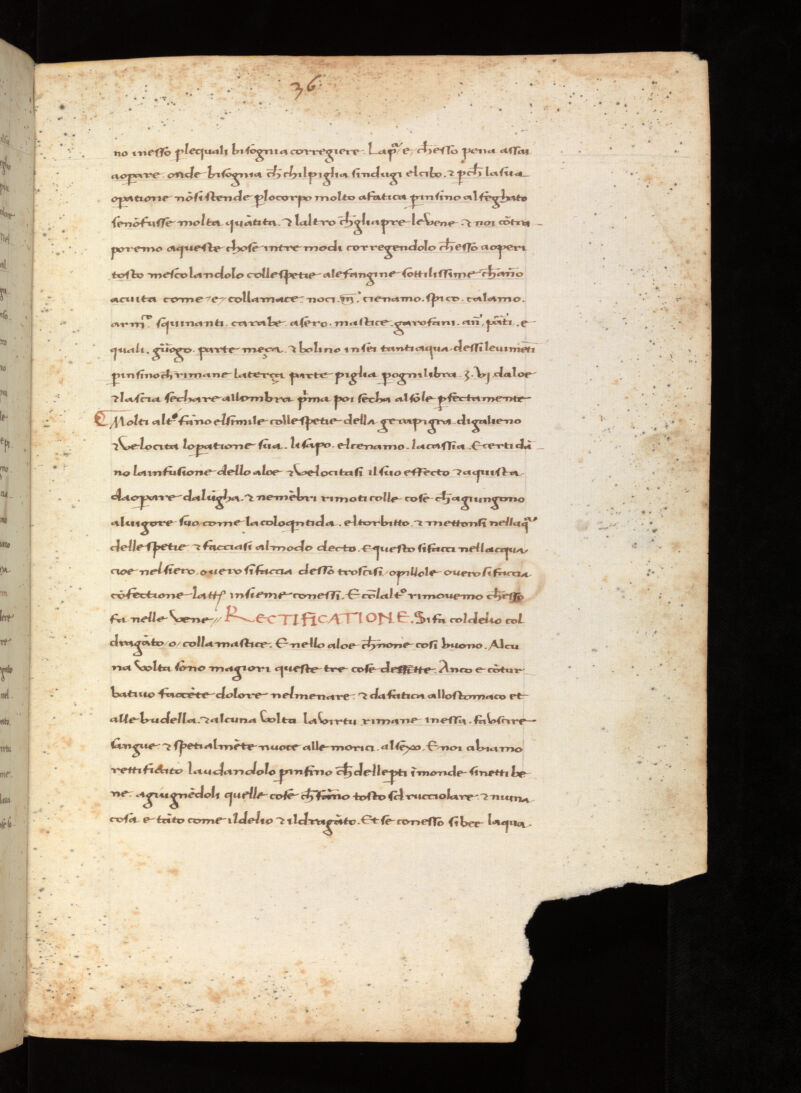 36
no inesso p̱lequali bisognia corregiere. Lapª. e. ch̄esso pena assai
aoperare. onde bisognia ch̄ chilpiglia sindugi elcibo. & p̱ch̄ lasua
op̱atione nōsistende p̱locorpo molto afatica p̱insino alfēghato
senōfusse molta quātita. & laltro ch̄gliapre levene. & noi cōtra
poremo aqueste chose intre modi corregendolo ch̄esso aoperi
tosto mescolandolo collespetie alefangine sottilissime ch̄ano
acuita come e collamace. noci. m̄. cienamo. spico. calamo.
squinanti. carabe. asero. mastice. garofani. an̄. p̄ati. e
quali. parte meça. & bolino insei tantiaqua dessi levimēti
p̱insinoch̄ rimane laterça parte piglia p̱ognilibra ʒ. vj daloe
& lascia sechare allombra p̄ma poi secha alsole p̱fectamente
Molti altº. fāno elsimile collespetie della gerapigra digalieno
& velocita lop̱atione sua. lisapo. elcenamo. lacassia. E certi dā
no lainfusione dello aloe & velocitasi ilsuo effecto & aquista
daop̱are dalūgha. & nemēbri rimoti colle cose ch̄agiungono
aluigore suo come lacoloq̄ntida. eltorbitto. & mettonsi nellaq̄ª
delle spetie & facciasi almodo decto. E questo sifacci nellacqua
cioe nelsiero. overo sifaccia desso troscisi. opillole overo sifaccia
cōfectione insieme conessi. E cōlaltº rimovemo ch̄esso
fa nelle vene // RECTIFICATIONE. Si fa coldelio col
dragāto o collamastice. E nello aloe ch̄none cosi buono. Alcu
na volta sono magiori queste tre cose Anco e cōtur
bativo faccēte dolore nelmenare. & dafatica allostomaco et
alle budella. & alcuna volta lavirtu rimane inessa. fa uscire
sangue & spetialmēte nuoce alle morici. alsexo. E noi abiamo
rettificato lavandolo p̱insino ch̄ dellep̱ti īmonde sinetti be
ne. agiugnēdoli quelle cose ch̄ fāno tosto sdrucciolare. & niuna
cosa e tāto come ildelio & ildragāto. Et se conesso sibee laqua